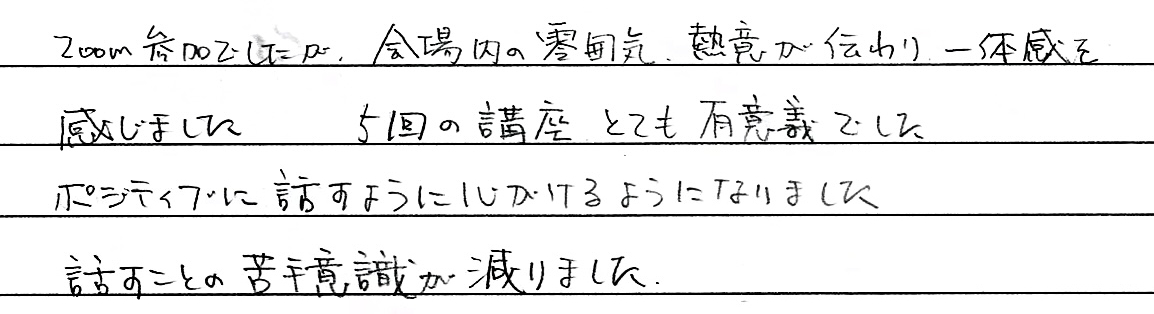 Zoom参加でしたが、会場内の雰囲気、熱意が伝わり一体感を
感じました　　5回の講座とても有意義でした
ポジティブに話すように心がけるようになりました
話すことの苦手意識が減りました.